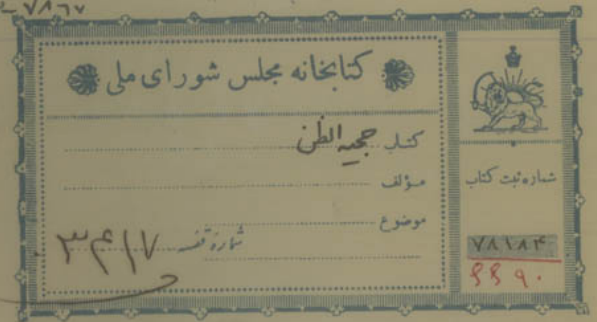 ۷۸۶۷
کتابخانه مجلس شورای ملی
کتاب حجیه الظن
مؤلف
موضوع
شماره قفسه ۳۴۱۷
شماره ثبت کتاب
۷۸۱۸۴
۶۶۹۰